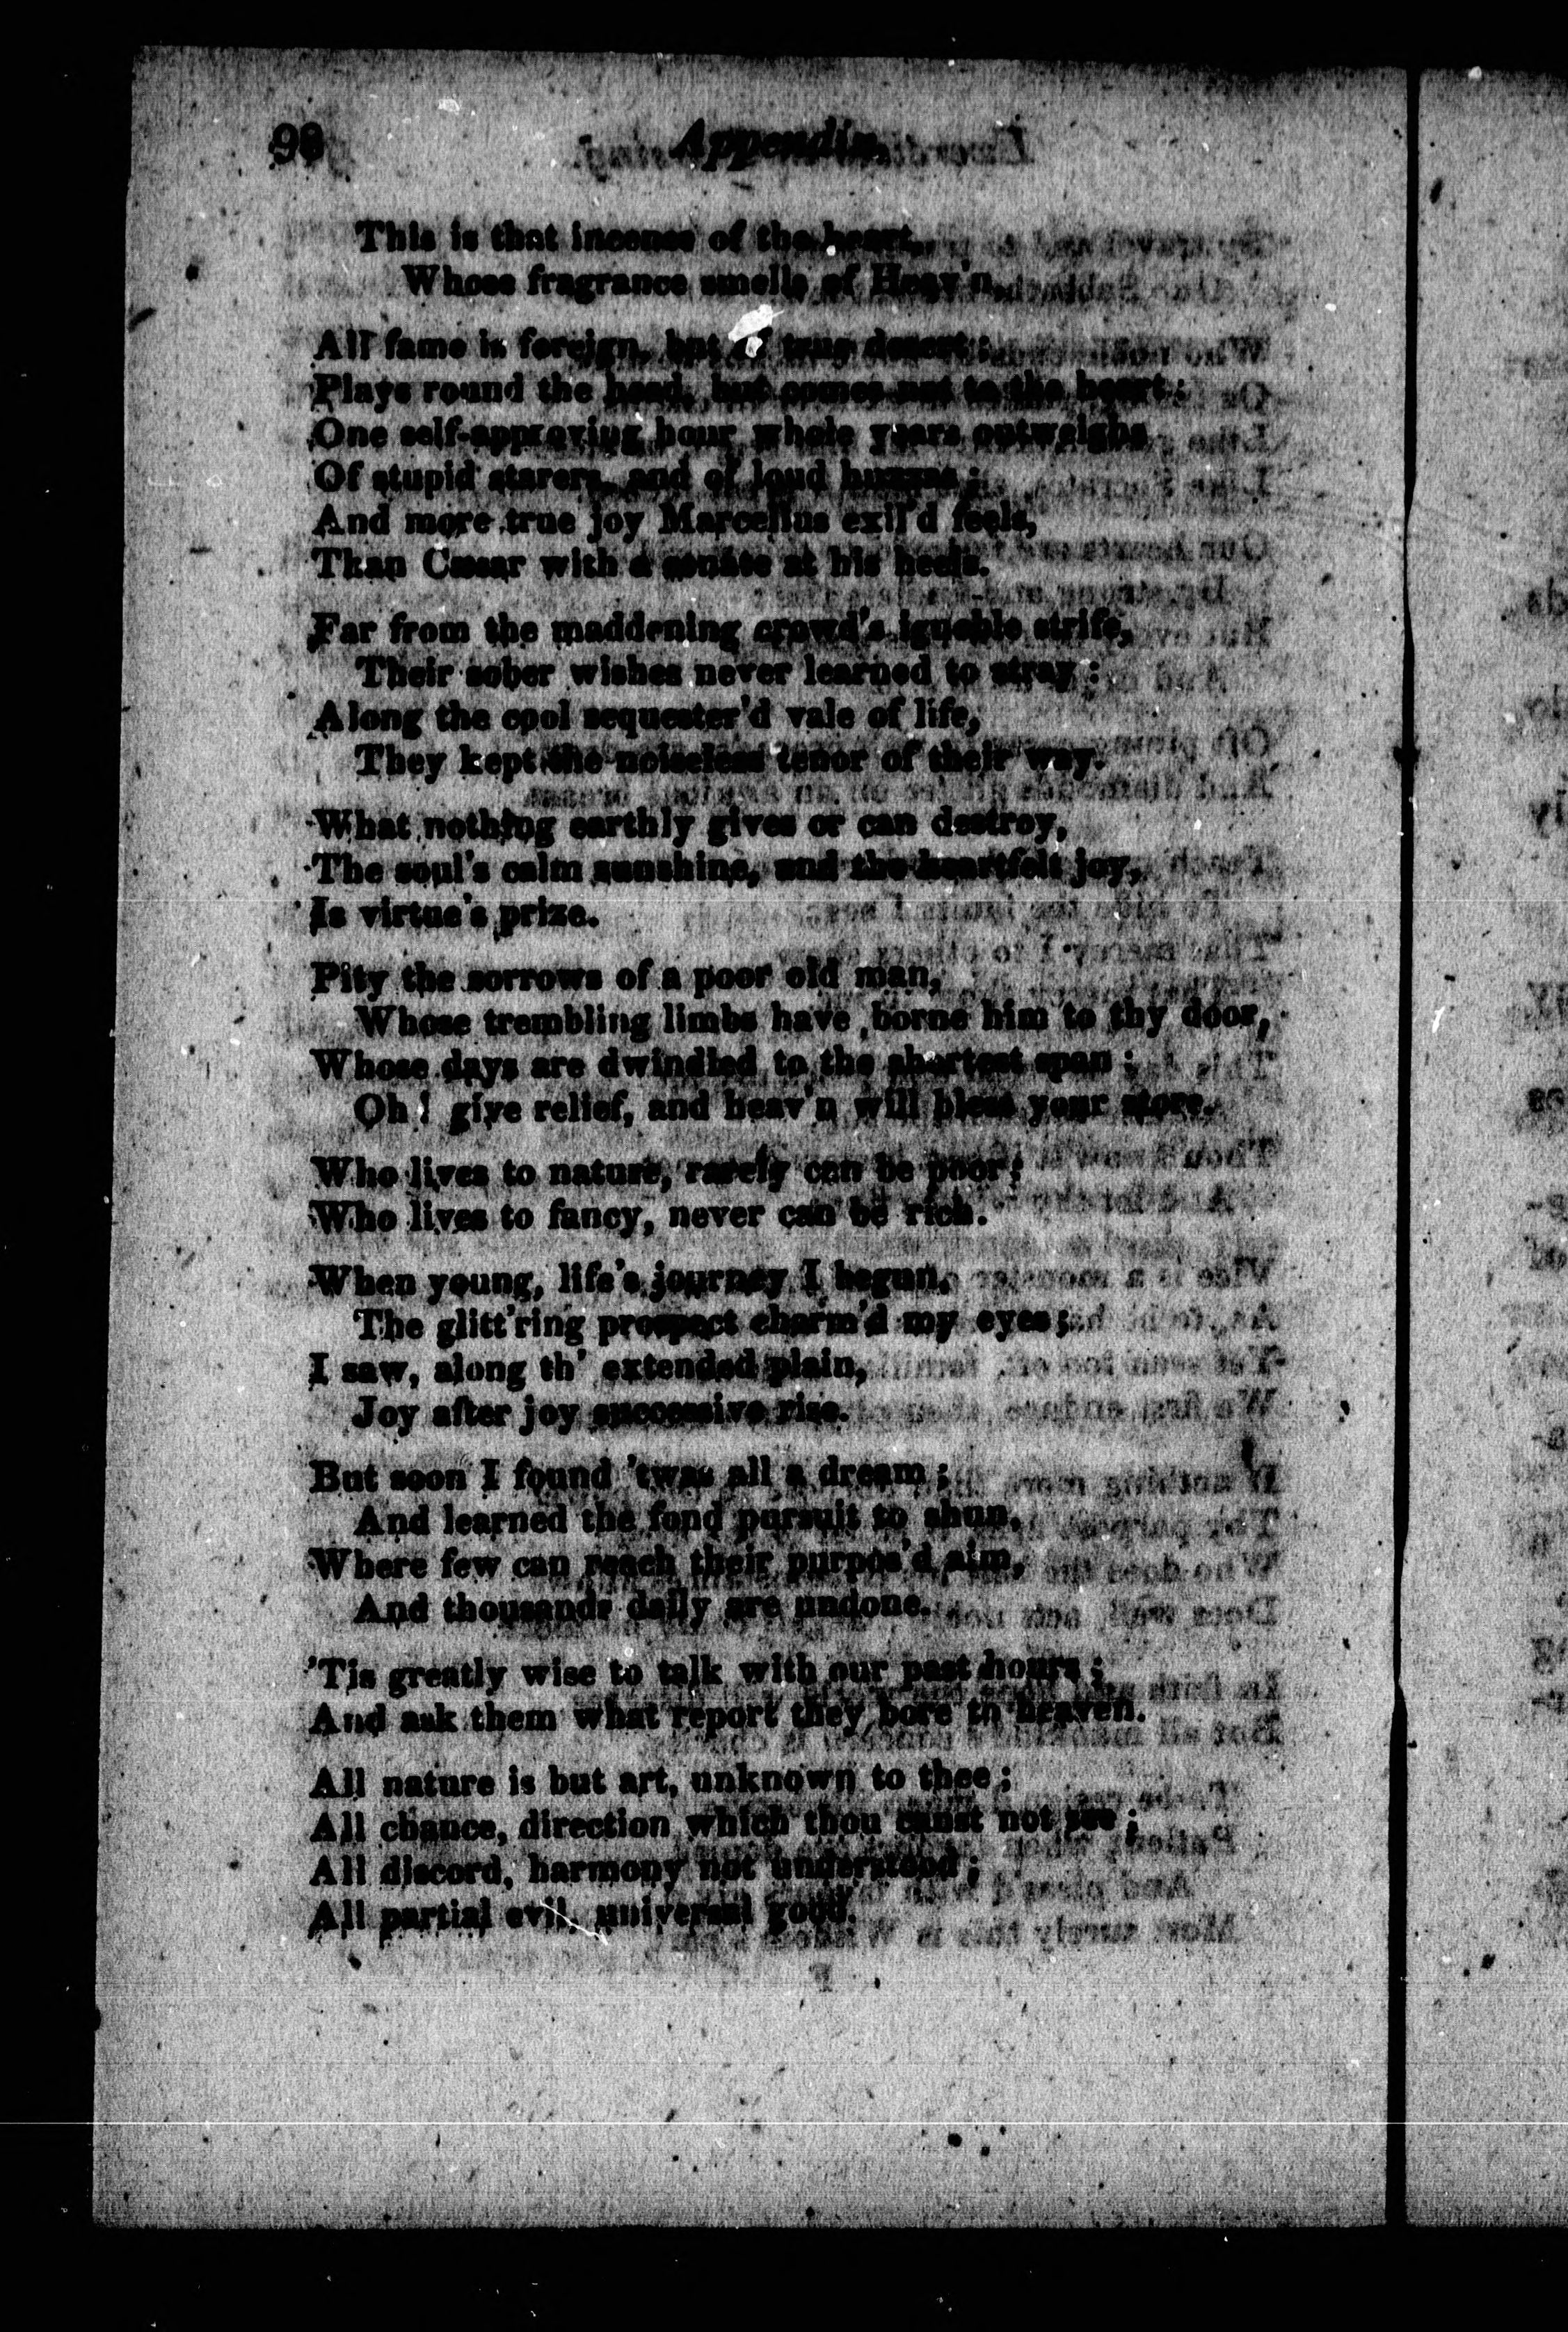 98
Appendix.
This is that incense of the heart,
Whose fragrance smells of Heav'n.
All fame is foreign, but of true desert;
Plays round the head, but comes not to the heart:
One self-approving hour whole years outweighs
Of stupid starers, and of loud huzzas;
And more true joy Marcellus exil'd feels,
Than Cæsar with a senate at his heels.
Far from the maddening crowd's ignoble strife,
Their sober wishes never learned to stray:
Along the cool sequester'd vale of life,
They kept the noiseless tenor of their way.
What nothing earthly gives or can destroy,
The soul's calm sunshine, and the heartfelt joy,
Is virtue's prize.
Pity the sorrows of a poor old man,
Whose trembling limbs have borne him to thy door,
Whose days are dwindled to the shortest span;
Oh! give relief, and heav'n will bless your store.
Who lives to nature, rarely can be poor;
Who lives to fancy, never can be rich.
When young, life's journey I begun,
The glitt'ring prospect charm'd my eyes;
I saw, along th' extended plain,
Joy after joy successive rise.
But soon I found 'twas all a dream;
And learned the fond pursuit to shun,
Where few can reach their purpos'd aim,
And thousands daily are undone.
'Tis greatly wise to talk with our past hours;
And ask them what report they bore to heaven.
All nature is but art, unknown to thee;
All chance, direction which thou canst not see;
All discord, harmony not understood;
All partial evil, universal good.